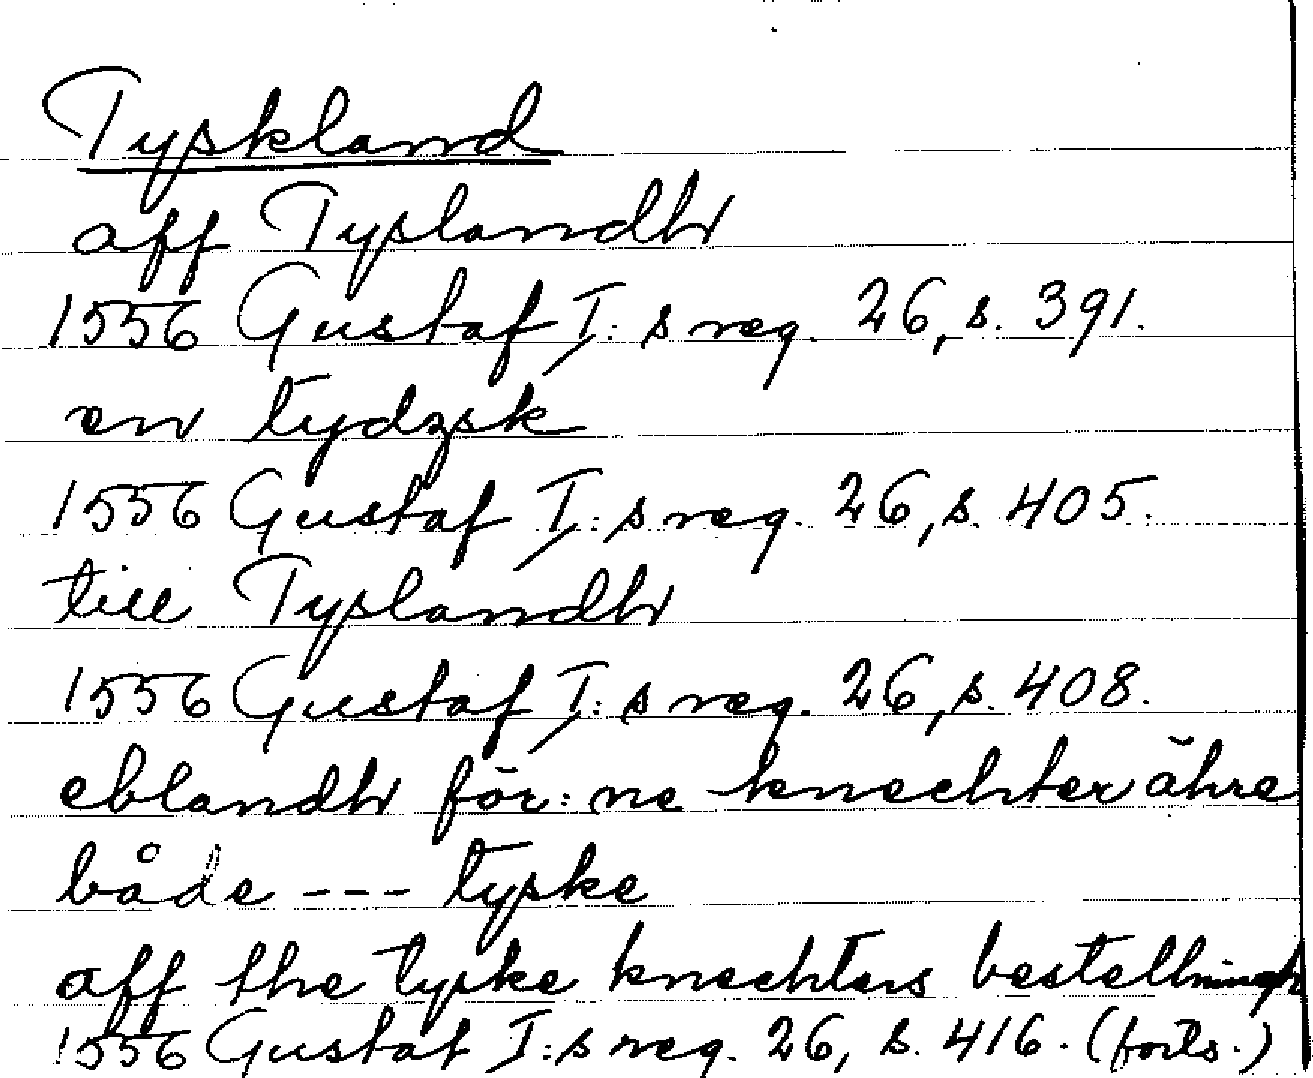 Tyskland
aff Tyslandh
1556 Gustaf I:s reg. 26, s. 391.
en tydzsk
1556 Gustaf I:s reg. 26, s. 405.
till Tyslandh
1556 Gustaf I:s reg. 26, s. 408.
eblandh för:ne knechter ähre
både --- tyske
aff the tyske knechters bestellningh
1556 Gustaf I:s reg. 26, s. 416. (forts.)